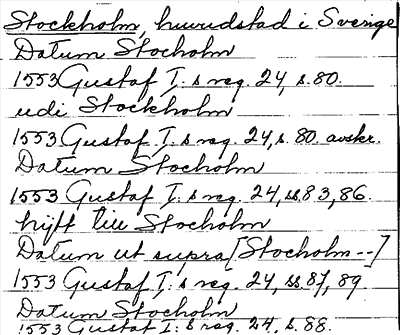 Stockholm, huvudstad i Sverige
Datum Stocholm
1553 Gustaf I:s reg. 24, s. 80.
udi Stockholm
1553 Gustaf I:s reg. 24, s. 80. avskr.
Datum Stocholm
1553 Gustaf I:s reg. 24, ss. 83, 86.
hijtt till Stocholm
Datum ut supra [Stocholm --]
1553 Gustaf I:s reg. 24, ss. 87, 89.
Datum Stocholm
1553 Gustaf I:s reg. 24, s. 88.